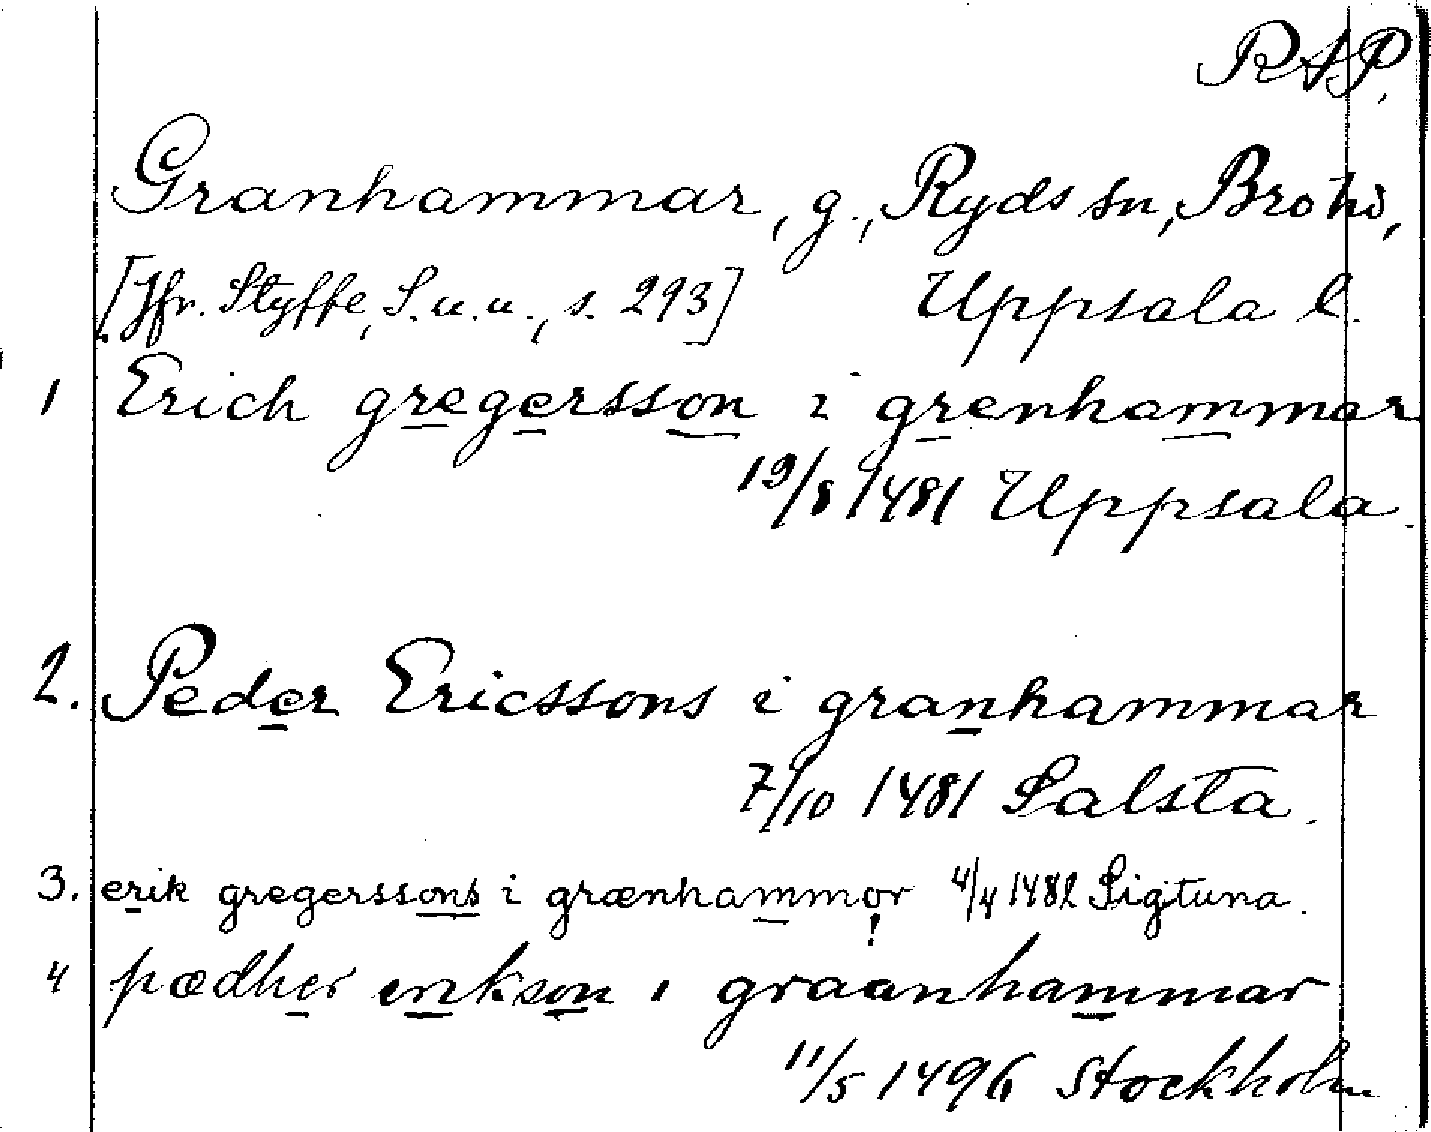 RAP.
Granhammar, g., Ryds sn, Bro hd,
[Jfr. Styffe, S.u.u., s. 293] Uppsala l.
1 Erich gregersson i grenhammar
19/8 1481 Uppsala.
2. Peder Ericssons i granhammar
7/10 1481 Salsta.
3. erik gregerssons i grænhammor 4/4 1482 Sigtuna.
!
4 pædher erikson i graanhammar
11/5 1496 Stockholm